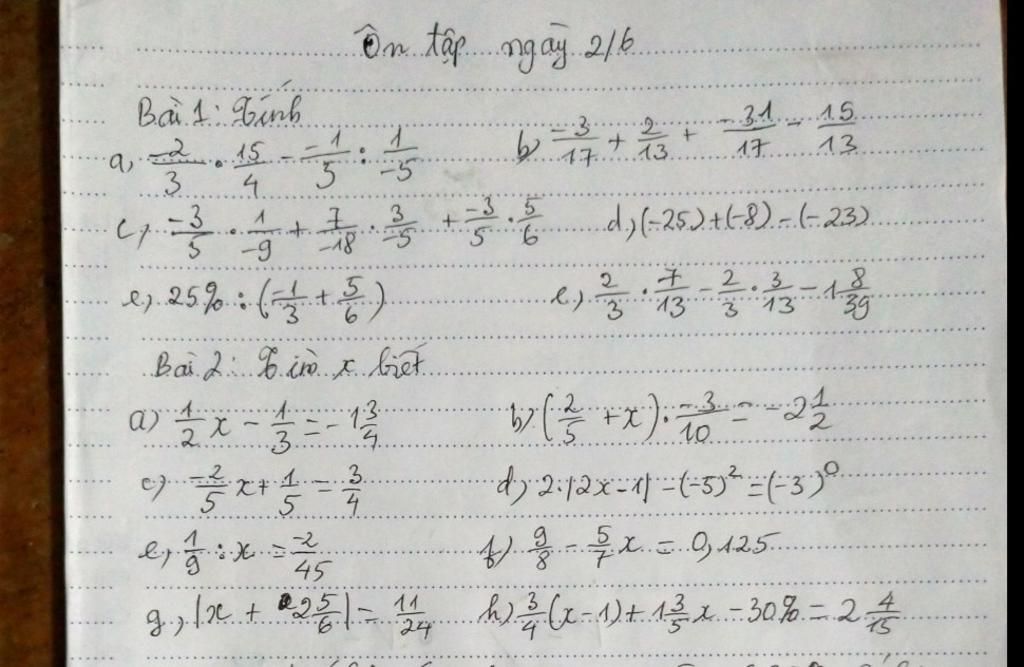 Ôn tập ngày 2/6
Bài 1: Tính
a, -2/3 . 15/4 - -1/5 : 1/-5 b, -3/17 + 2/13 + -31/17 - 15/13
c, -3/5 . 1/-9 + 7/-18 . 3/-5 + -3/5 . 5/6 d, (-25)+(-8)-(-23)
e, 25% : (-1/3 + 5/6) e, 2/3 . 7/13 - 2/3 . 3/13 - 1 8/39
Bài 2: Tìm x biết
a) 1/2 x - 1/3 = -1 3/4 b, (2/5 + x) . -3/10 = -2 1/2
c) -2/5 x + 1/5 = 3/4 d, 2.|2x-1| - (-5)² = (-3)⁰
e, 1/9 : x = -2/45 f) 9/8 - 5/7 x = 0,125
g, |x + 2 5/6| = 11/24 h) 3/4 (x-1) + 1 3/5 x - 30% = 2 4/15